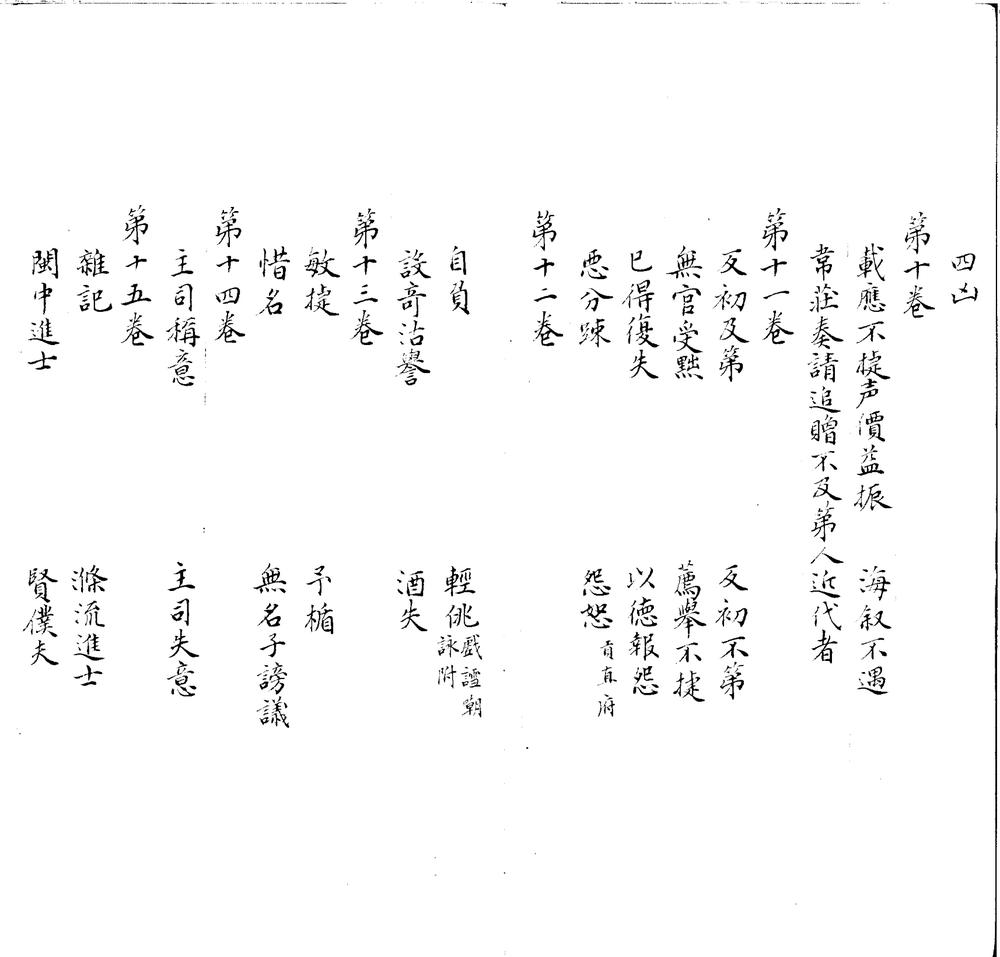 四凶
第十卷
載應不㨗声價益振　海叙不遇
常莊奏請追贈不及第人近代者
第十一卷
反初及第　反初不第
無官受黜　薦舉不捷
已得復失　以德報怨
悪分踈　怨怒
第十二卷
自負　輕佻戯謔嘲詠附
設竒沽譽　酒失
第十三卷
敏㨗　予楯
惜名　無名子謗議
第十四卷
主司稱意　主司失意
第十五卷
雜記　滌流進士
閩中進士　賢僕夫